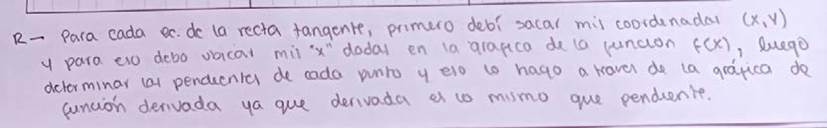 R→ Para cada ec. de la recta tangente, primero debí sacar mis coordenadas (x,y)
y para eso debo ubicar mis "x" dadas en la gráfica de la función f(x), luego
determinar las pendientes de cada punto y eso lo hago a través de la gráfica de
función derivada ya que derivada es lo mismo que pendiente.